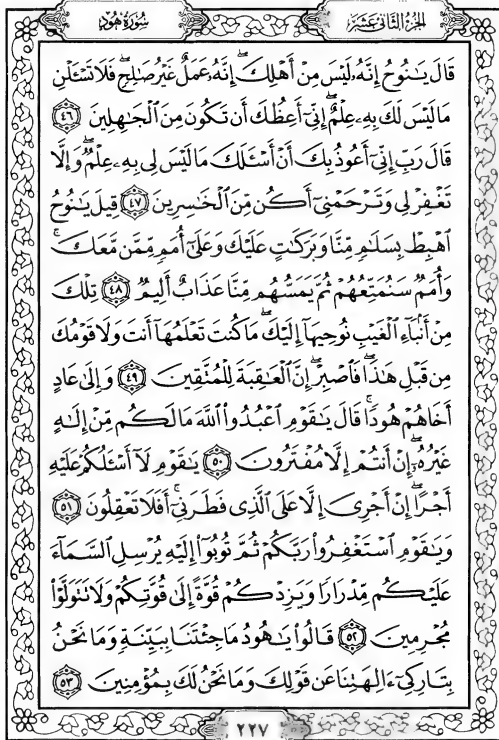 الجزء الثاني عشر
سورة هود
قَالَ يَٰنُوحُ إِنَّهُۥ لَيْسَ مِنْ أَهْلِكَۖ إِنَّهُۥ عَمَلٌ غَيْرُ صَٰلِحٍۖ فَلَا تَسْـَٔلْنِ
مَا لَيْسَ لَكَ بِهِۦ عِلْمٌۖ إِنِّىٓ أَعِظُكَ أَن تَكُونَ مِنَ ٱلْجَٰهِلِينَ ٤٦
قَالَ رَبِّ إِنِّىٓ أَعُوذُ بِكَ أَنْ أَسْـَٔلَكَ مَا لَيْسَ لِى بِهِۦ عِلْمٌۖ وَإِلَّا
تَغْفِرْ لِى وَتَرْحَمْنِىٓ أَكُن مِّنَ ٱلْخَٰسِرِينَ ٤٧ قِيلَ يَٰنُوحُ
ٱهْبِطْ بِسَلَٰمٍ مِّنَّا وَبَرَكَٰتٍ عَلَيْكَ وَعَلَىٰٓ أُمَمٍ مِّمَّن مَّعَكَۚ
وَأُمَمٌ سَنُمَتِّعُهُمْ ثُمَّ يَمَسُّهُم مِّنَّا عَذَابٌ أَلِيمٌ ٤٨ تِلْكَ
مِنْ أَنۢبَآءِ ٱلْغَيْبِ نُوحِيهَآ إِلَيْكَۖ مَا كُنتَ تَعْلَمُهَآ أَنتَ وَلَا قَوْمُكَ
مِن قَبْلِ هَٰذَاۖ فَٱصْبِرْۖ إِنَّ ٱلْعَٰقِبَةَ لِلْمُتَّقِينَ ٤٩ وَإِلَىٰ عَادٍ
أَخَاهُمْ هُودًاۚ قَالَ يَٰقَوْمِ ٱعْبُدُوا۟ ٱللَّهَ مَا لَكُم مِّنْ إِلَٰهٍ
غَيْرُهُۥٓۖ إِنْ أَنتُمْ إِلَّا مُفْتَرُونَ ٥٠ يَٰقَوْمِ لَآ أَسْـَٔلُكُمْ عَلَيْهِ
أَجْرًاۖ إِنْ أَجْرِىَ إِلَّا عَلَى ٱلَّذِى فَطَرَنِىٓۚ أَفَلَا تَعْقِلُونَ ٥١
وَيَٰقَوْمِ ٱسْتَغْفِرُوا۟ رَبَّكُمْ ثُمَّ تُوبُوٓا۟ إِلَيْهِ يُرْسِلِ ٱلسَّمَآءَ
عَلَيْكُم مِّدْرَارًا وَيَزِدْكُمْ قُوَّةً إِلَىٰ قُوَّتِكُمْ وَلَا تَتَوَلَّوْا۟
مُجْرِمِينَ ٥٢ قَالُوا۟ يَٰهُودُ مَا جِئْتَنَا بِبَيِّنَةٍ وَمَا نَحْنُ
بِتَارِكِىٓ ءَالِهَتِنَا عَن قَوْلِكَ وَمَا نَحْنُ لَكَ بِمُؤْمِنِينَ ٥٣
٢٢٧